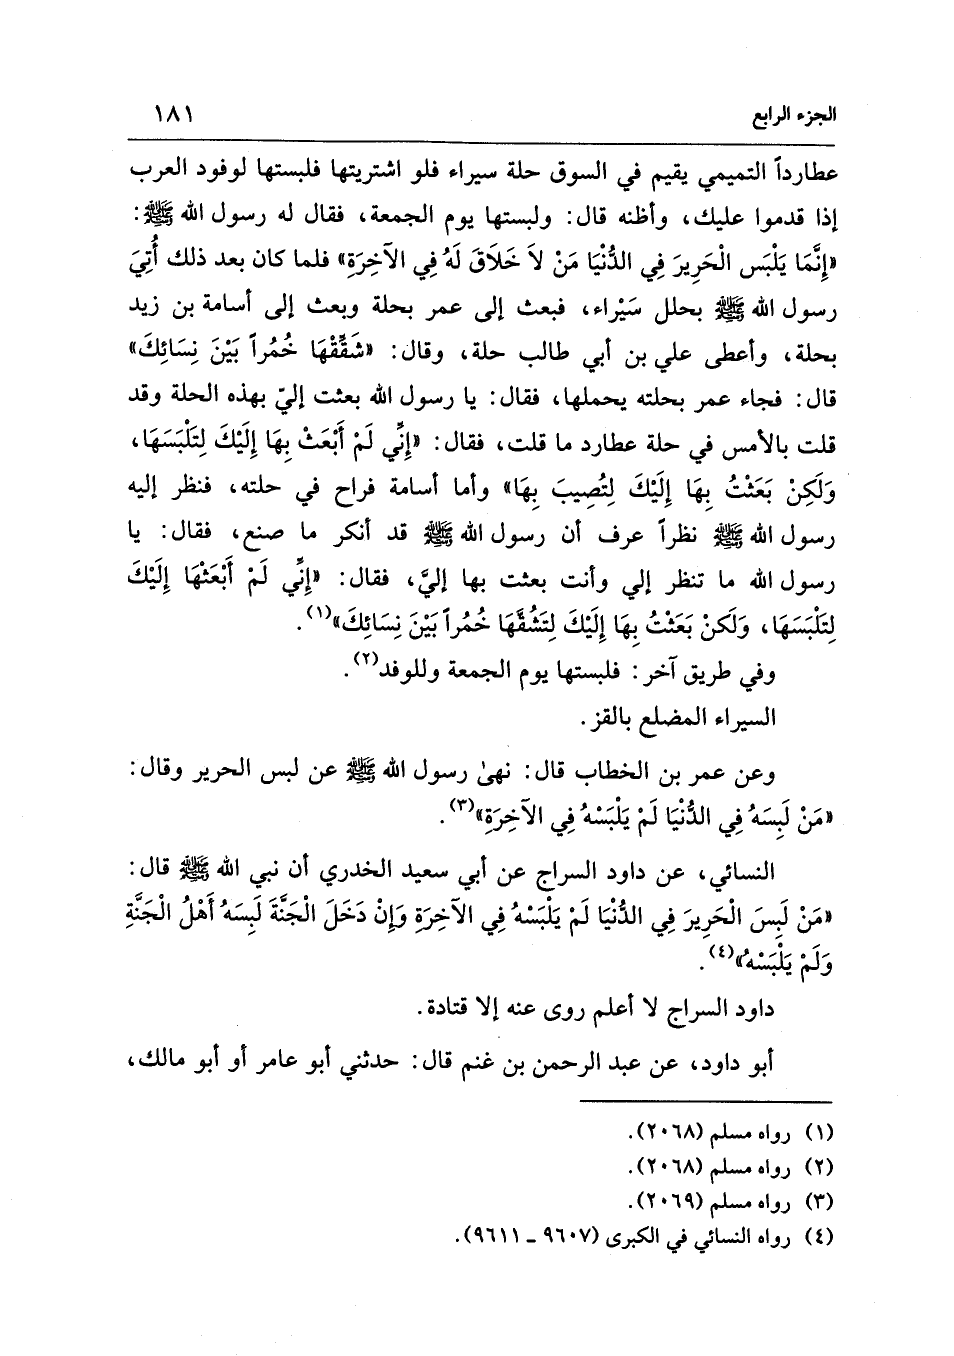 الجزء الرابع ١٨١
عطارداً التميمي يقيم في السوق حلة سيراء فلو اشتريتها فلبستها لوفود العرب
إذا قدموا عليك، وأظنه قال: ولبستها يوم الجمعة، فقال له رسول الله ﷺ:
«إِنَّمَا يَلْبَس الْحَرِيرَ فِي الدُّنْيَا مَنْ لاَ خَلاَقَ لَهُ فِي الآخِرَةِ» فلما كان بعد ذلك أُتِيَ
رسول الله ﷺ بحلل سَيْراء، فبعث إلى عمر بحلة وبعث إلى أسامة بن زيد
بحلة، وأعطى علي بن أبي طالب حلة، وقال: «شَقِّقْهَا خُمُراً بَيْنَ نِسَائِكَ»
قال: فجاء عمر بحلته يحملها، فقال: يا رسول الله بعثت إليّ بهذه الحلة وقد
قلت بالأمس في حلة عطارد ما قلت، فقال: «إِنِّي لَمْ أَبْعَثْ بِهَا إِلَيْكَ لِتَلْبَسَهَا،
وَلَكِنْ بَعَثْتُ بِهَا إِلَيْكَ لِتُصِيبَ بِهَا» وأما أسامة فراح في حلته، فنظر إليه
رسول الله ﷺ نظراً عرف أن رسول الله ﷺ قد أنكر ما صنع، فقال: يا
رسول الله ما تنظر إلي وأنت بعثت بها إليَّ، فقال: «إِنِّي لَمْ أَبْعَثْهَا إِلَيْكَ
لِتَلْبَسَهَا، وَلَكنْ بَعَثْتُ بِهَا إِلَيْكَ لِتَشُقَّهَا خُمُراً بَيْنَ نِسَائِكَ»(١).
وفي طريق آخر: فلبستها يوم الجمعة وللوفد(٢).
السيراء المضلع بالقز.
وعن عمر بن الخطاب قال: نهىٰ رسول الله ﷺ عن لبس الحرير وقال:
«مَنْ لَبِسَهُ فِي الدُّنْيَا لَمْ يَلْبَسْهُ فِي الآخِرَةِ»(٣).
النسائي، عن داود السراج عن أبي سعيد الخدري أن نبي الله ﷺ قال:
«مَنْ لَبِسَ الْحَرِيرَ فِي الدُّنْيَا لَمْ يَلْبَسْهُ فِي الآخِرَةِ وَإِنْ دَخَلَ الْجَنَّةَ لَبِسَهُ أَهْلُ الْجَنَّةِ
وَلَمْ يَلْبَسْهُ»(٤).
داود السراج لا أعلم روى عنه إلا قتادة.
أبو داود، عن عبد الرحمن بن غنم قال: حدثني أبو عامر أو أبو مالك،
(١) رواه مسلم (٢٠٦٨).
(٢) رواه مسلم (٢٠٦٨).
(٣) رواه مسلم (٢٠٦٩).
(٤) رواه النسائي في الكبرى (٩٦٠٧ - ٩٦١١).